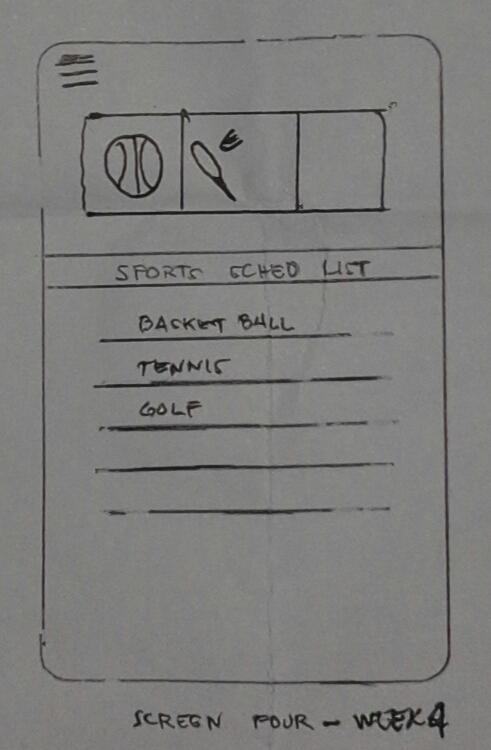 SPORTS SCHED LIST
BASKET BALL
TENNIS
GOLF
SCREEN FOUR - WEEK4